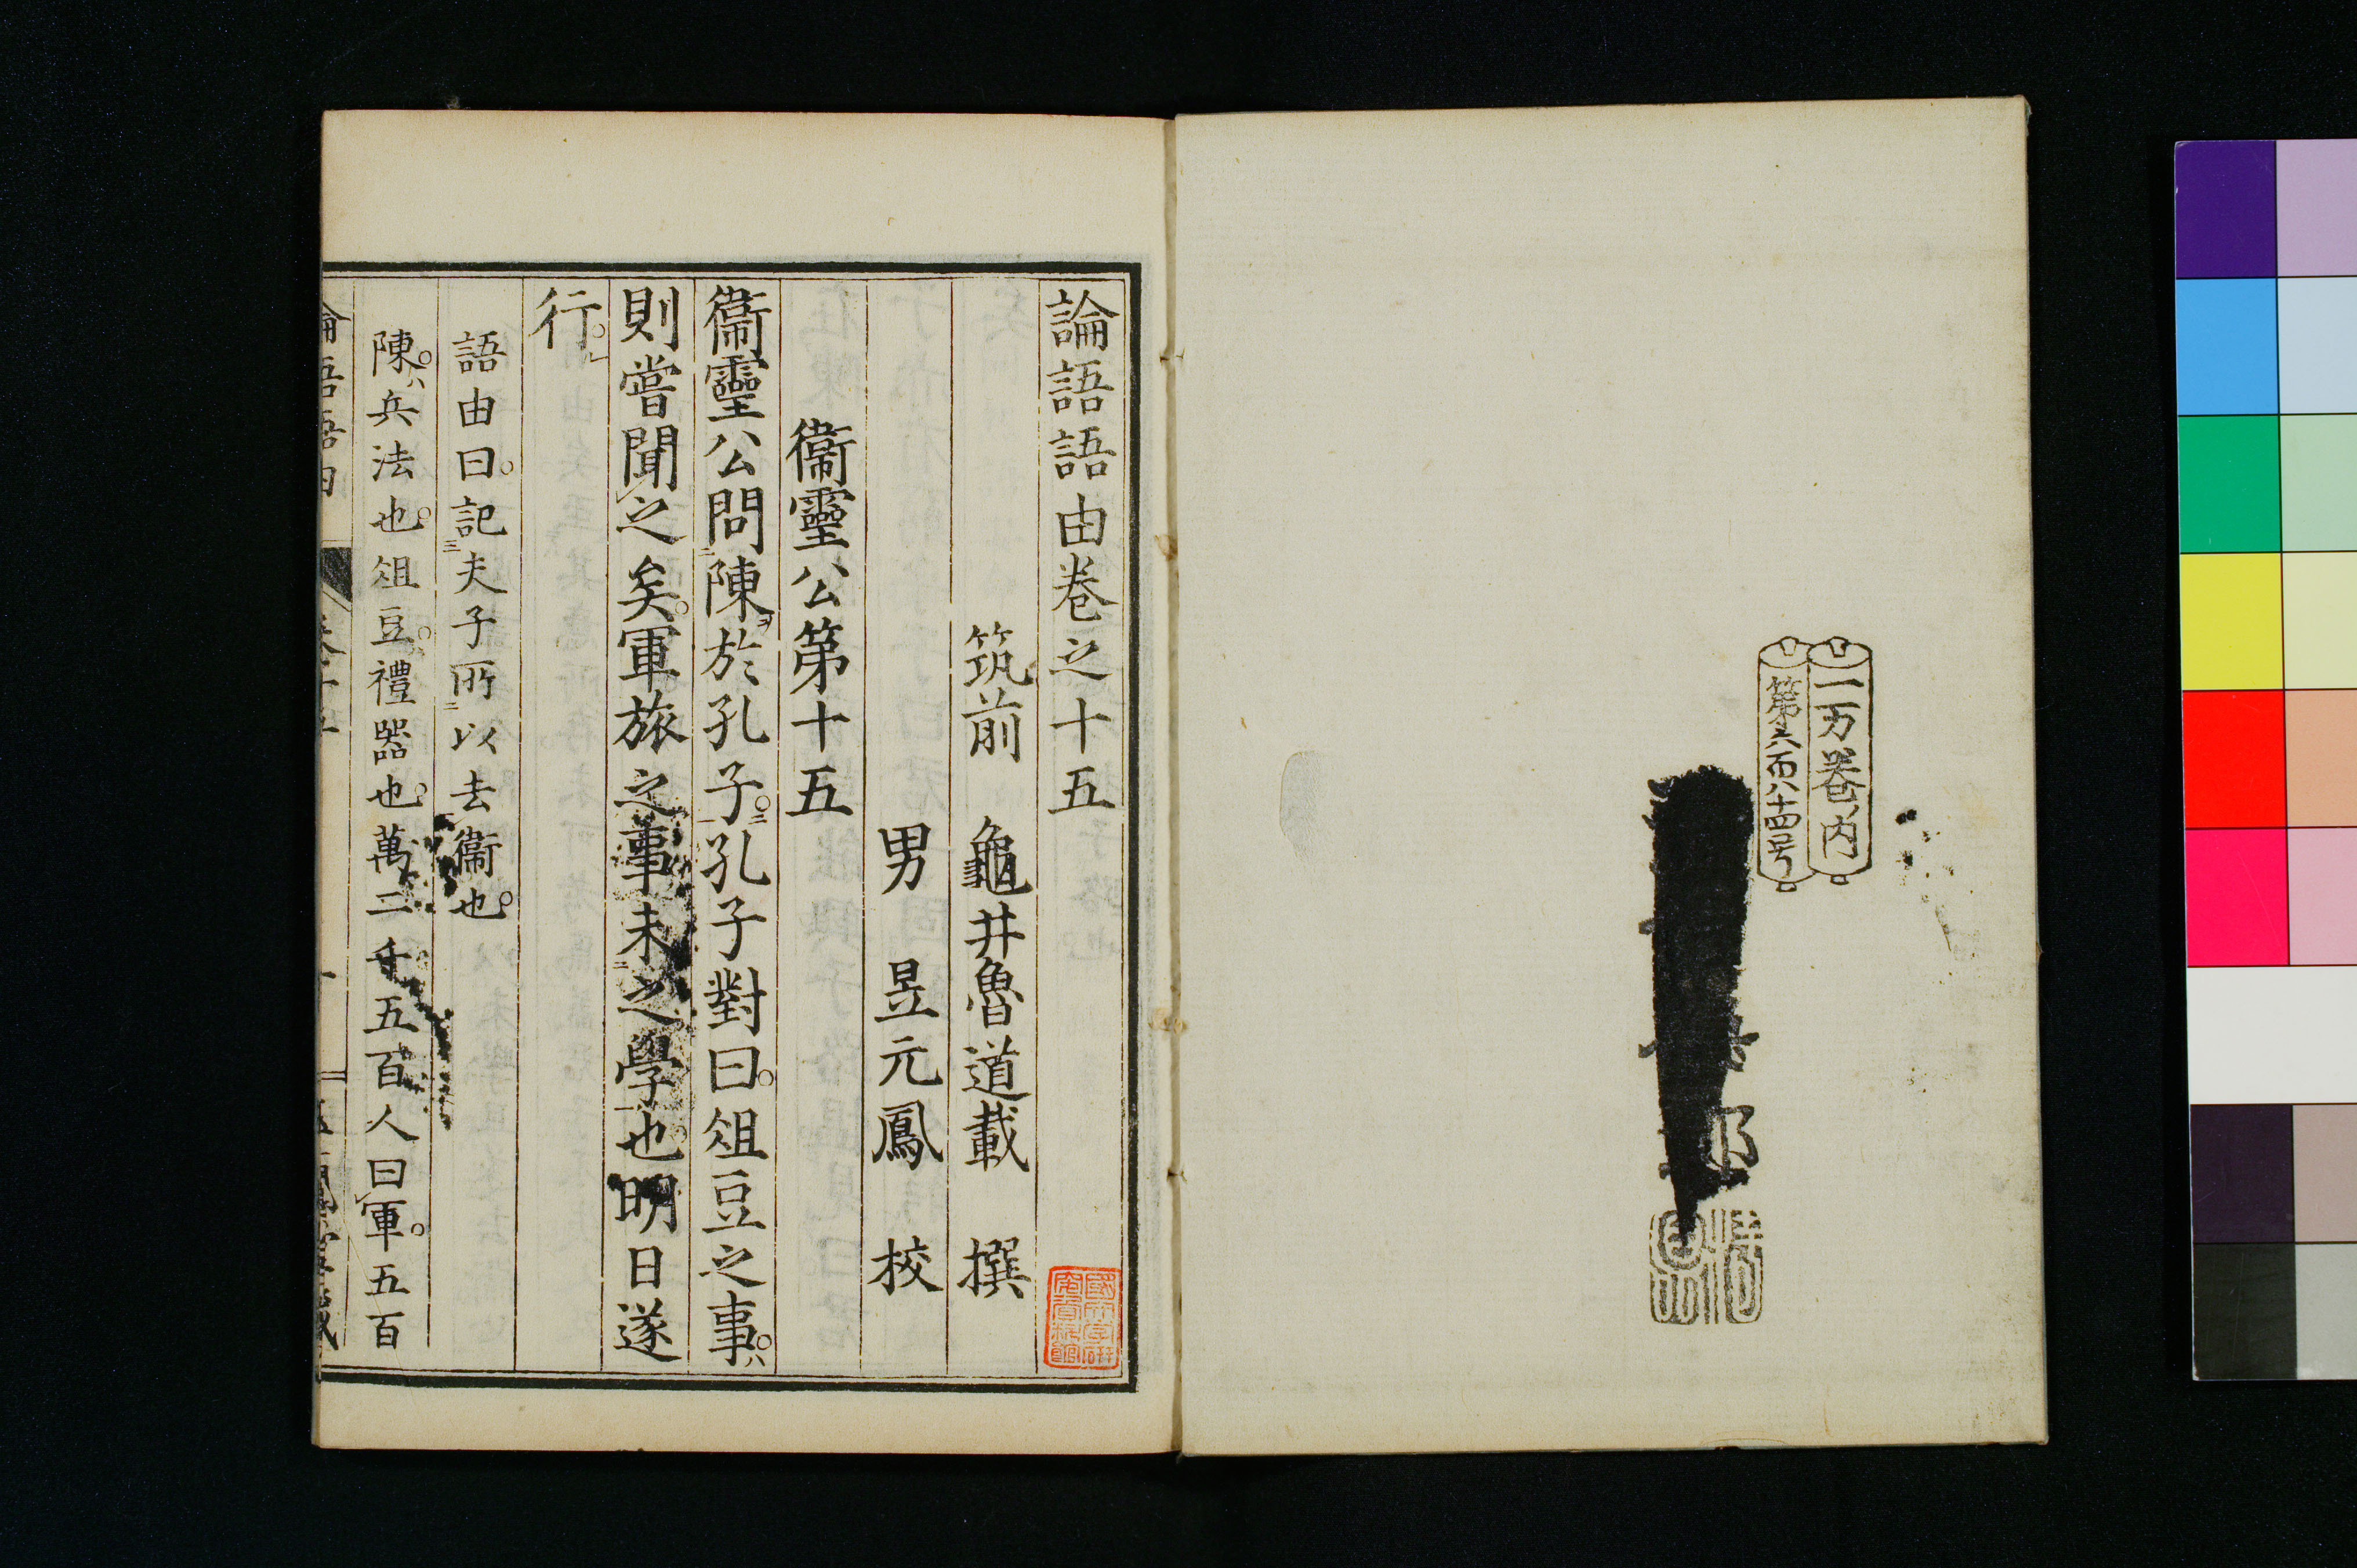 一万卷内
第六百八十四号
論語語由卷之十五
筑前 龜井魯道載 撰
男 昱元鳳 校
衞靈公第十五
衞靈公問陳於孔子孔子對曰俎豆之事
則嘗聞之矣軍旅之事未之學也明日遂
行
語由曰記夫子所以去衞也
陳兵法也俎豆禮器也萬二千五百人曰軍五百
論語語由 卷十五